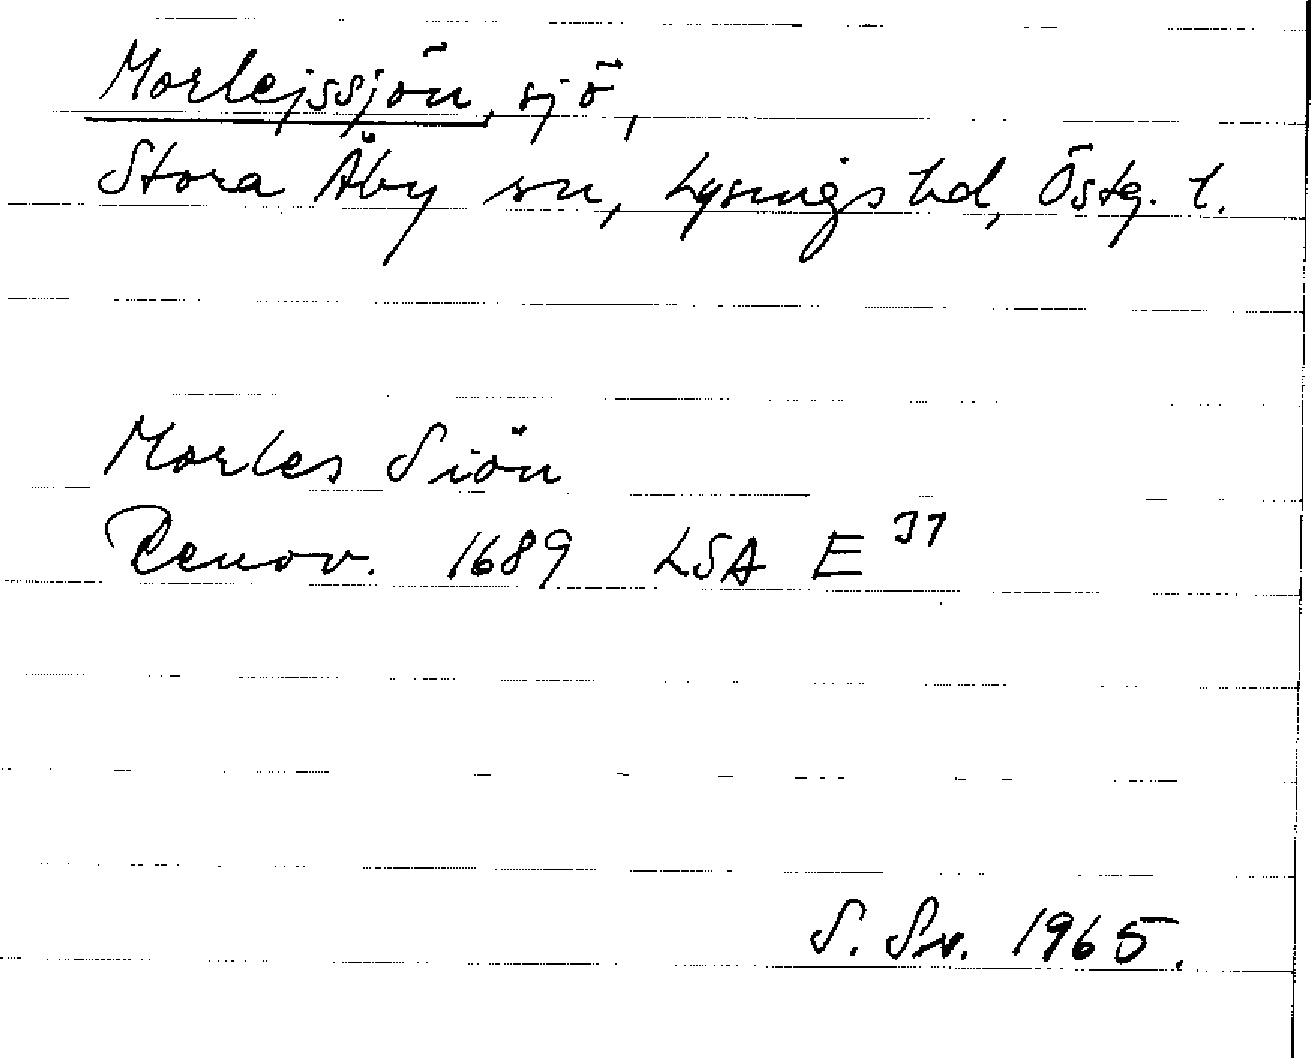 Morlejssjön, sjö,
Stora Åby sn, Lysings hd, Östg. l.
Morles Siön
Renov. 1689 LSA E 37
S. Sv. 1965.